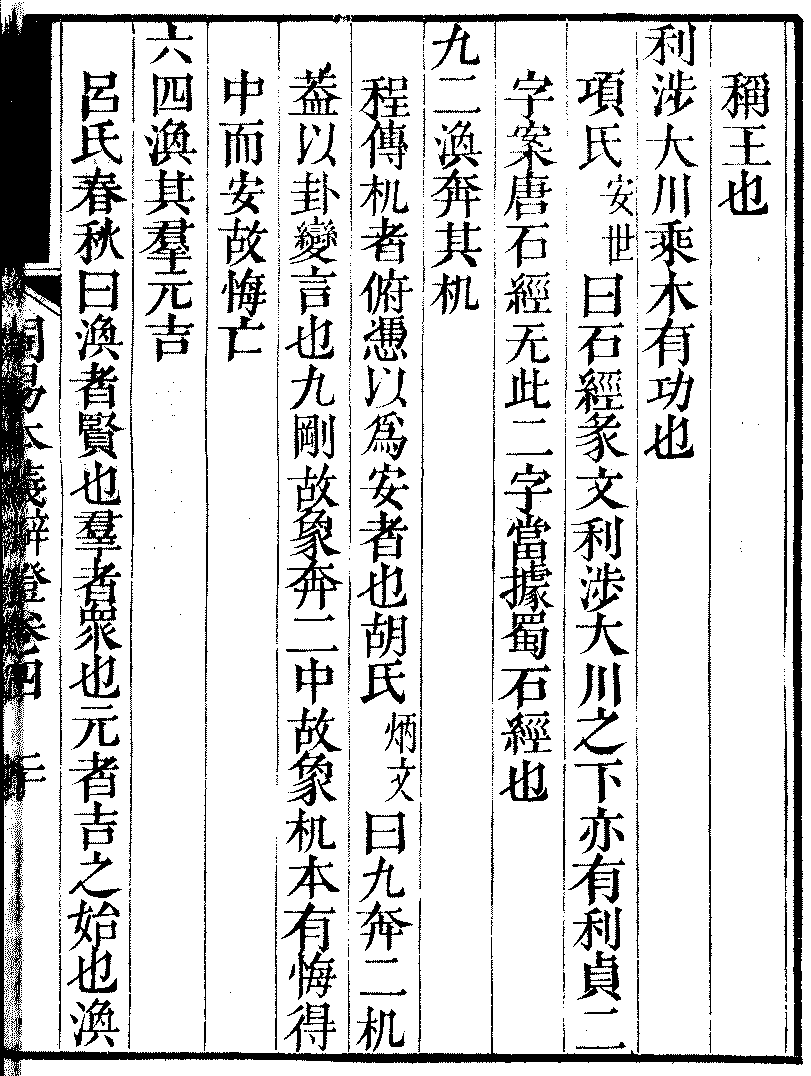 稱王也
利涉大川乘木有功也
項氏安世曰石經彖文利涉大川之下亦有利貞二
字案唐石經无此二字當據蜀石經也
九二渙奔其机
程傳机者俯憑以爲安者也胡氏炳文曰九奔二机
葢以卦變言也九剛故象奔二中故象机本有悔得
中而安故悔亡
六四渙其羣元吉
呂氏春秋曰渙者賢也羣者衆也元者吉之始也渙
周易本義辯證卷四